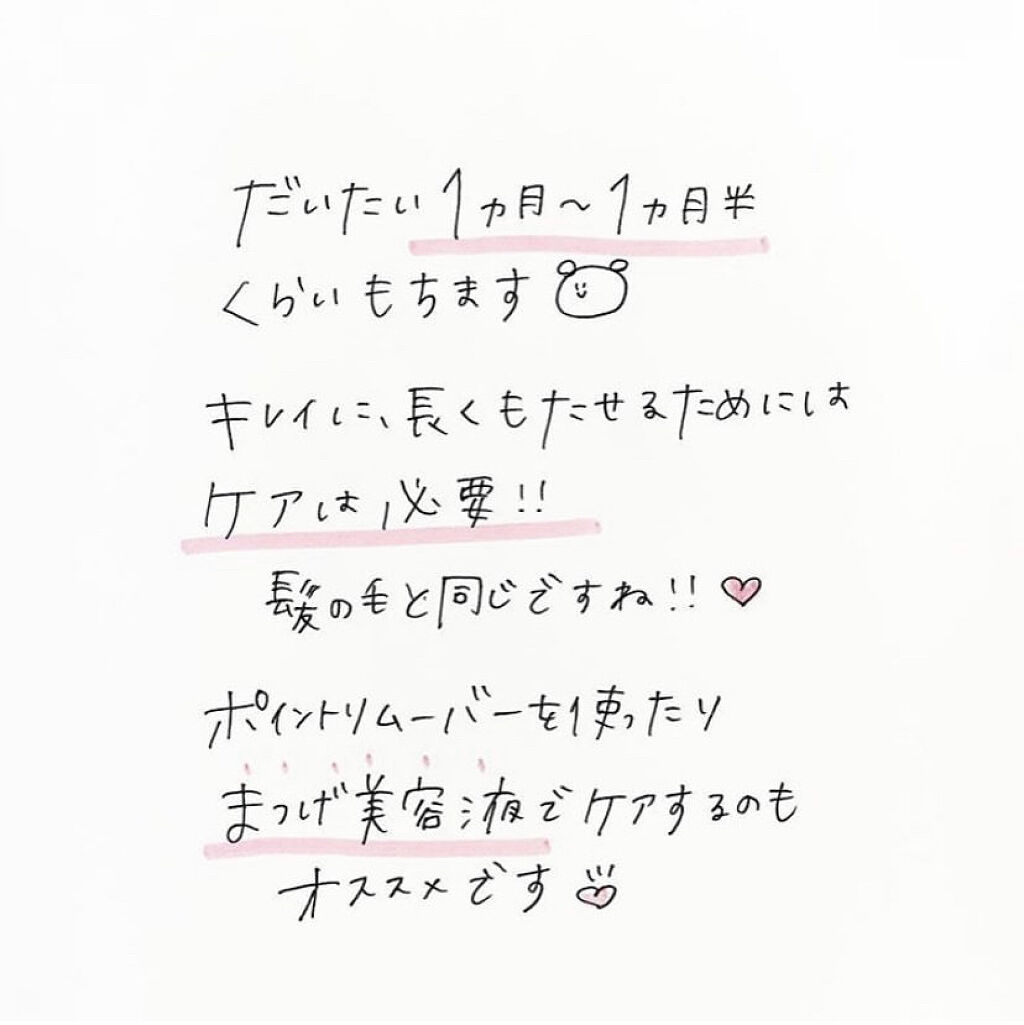 だいたい1ヵ月～1ヵ月半
くらいもちます
キレイに、長くもたせるためには
ケアは必要!!
髪の毛と同じですね!!
ポイントリムーバーを使ったり
まつげ美容液でケアするのも
オススメです